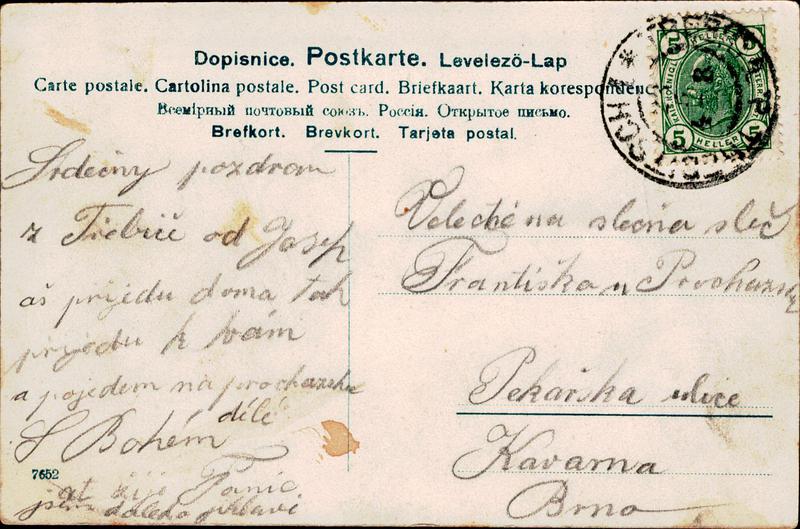 Dopisnice. Postkarte. Levelező-Lap
Carte postale. Cartolina postale. Post card. Briefkaart. Karta korespondenc
Всемірный почтовый союзъ. Россія. Открытое письмо.
Brefkort. Brevkort. Tarjeta postal.
5 5
5 HELLER 5
Srdečný pozdrav
z Třebíče od Josef
aš prijedu doma tak
prijedu k vám
a pojedem na prochazku
délé
S Bohém
7652
Velecténa slečna sleč
Františka
Pekařska ulice
Kavarna
Brno